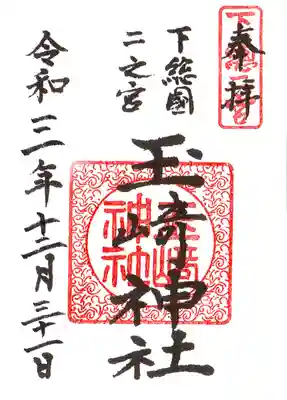 奉拝
下総國
二之宮
玉崎神社
玉崎神社
令和三年十二月三十一日